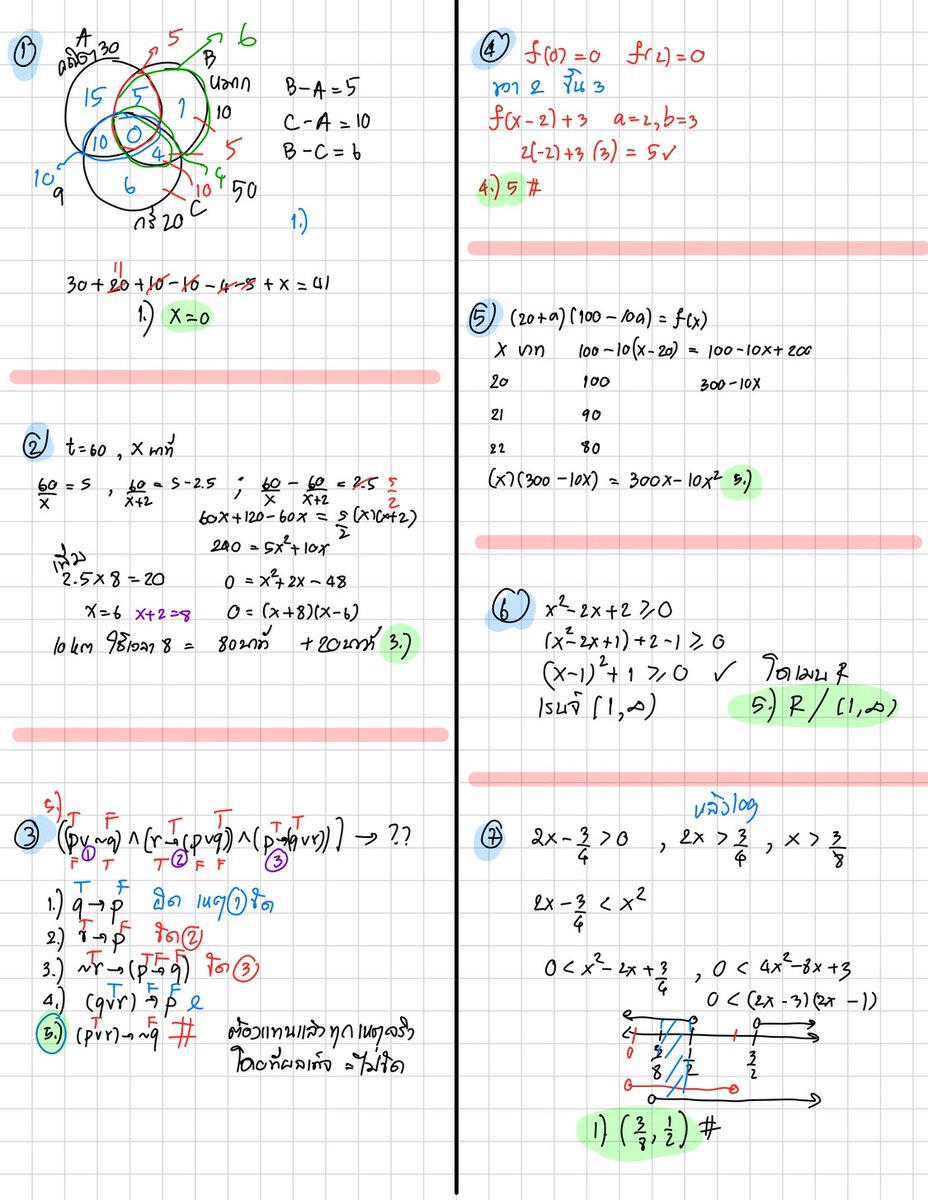 1)
A
คณิตฯ 30
5
6
B
10
15
5
1
10
0
4
5
10
9
6
10
4
50
C
กรี 20
B-A = 5
C-A = 10
B-C = 6
1.)
11
30 + 20 + 10 - 10 - 4 - 5 + x = 41
1.) x = 0
2) t = 60 , x นาที
60/x = s , 60/(x+2) = s - 2.5 ; 60/x - 60/(x+2) = 2.5 5/2
60x + 120 - 60x = 5/2 (x)(x+2)
240 = 5x² + 10x
เพิ่ม
2.5 × 8 = 20 0 = x² + 2x - 48
x = 6 x+2 = 8 0 = (x+8)(x-6)
10 km ใช้เวลา 8 = 80 นาที +20 นาที 3.)
5.)
3 [(p∨~q) ∧ (r→(p∨q)) ∧ (p→(q∨r))] → ??
1 2 3
1.) q→p ผิด เหตุ 1 ขัด
2.) r→p ขัด 2
3.) ~r→(p→q) ขัด 3
4.) (q∨r)→p
5.) (p∨r)→~q # ต้องแทนแล้วทุกเหตุจริง
โดยที่ผลเท็จ = ไม่ขัด
4) f(0) = 0 f(2) = 0
ขวา 2 ขึ้น 3
f(x-2)+3 a=2, b=3
2(-2)+3(3) = 5 ✓
4.) 5 #
5) (20+a)(100-10a) = f(x)
x บาท 100-10(x-20) = 100-10x+200
20 100 300-10x
21 90
22 80
(x)(300-10x) = 300x-10x² 5.)
6 x²-2x+2 ≥ 0
(x²-2x+1)+2-1 ≥ 0
(x-1)²+1 ≥ 0 ✓ โดเมน R
เรนจ์ [1,∞) 5.) R / [1,∞)
หลัง log
7 2x - 3/4 > 0 , 2x > 3/4 , x > 3/8
2x - 3/4 < x²
0 < x² - 2x + 3/4 , 0 < 4x² - 8x + 3
0 < (2x-3)(2x-1)
0 3/8 1/2 3/2
1) (3/8, 1/2) #